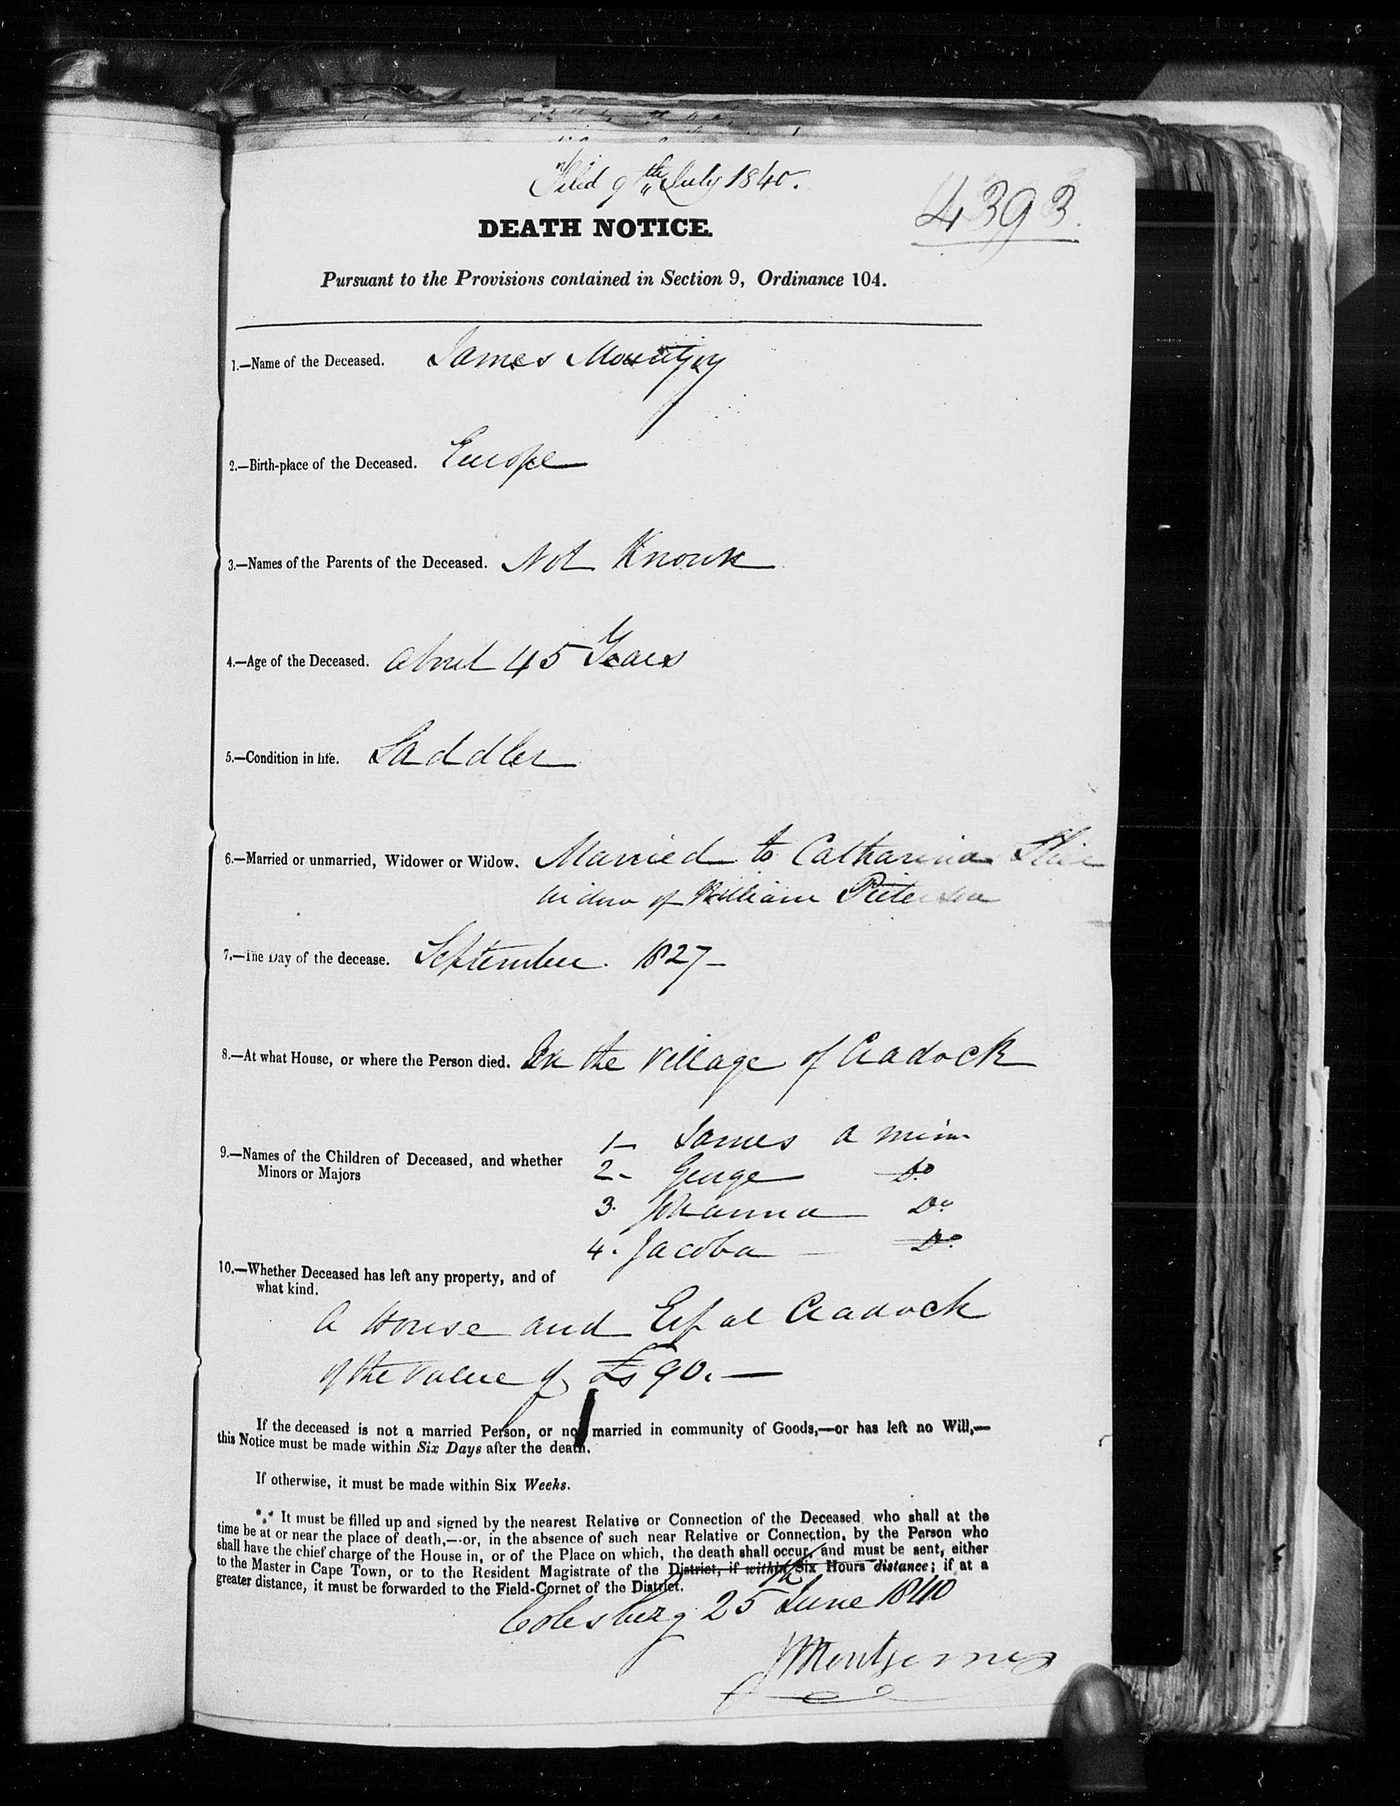 Filed 9th July 1840.
4393.
DEATH NOTICE.
Pursuant to the Provisions contained in Section 9, Ordinance 104.
1.—Name of the Deceased. James Mountjoy
2.—Birth-place of the Deceased. Europe
3.—Names of the Parents of the Deceased. Not Known
4.—Age of the Deceased. about 45 Years
5.—Condition in life. Saddler
6.—Married or unmarried, Widower or Widow. Married to Catharina
widow of William
7.—The Day of the decease. September 1827—
8.—At what House, or where the Person died. In the Village of Cradock
9.—Names of the Children of Deceased, and whether
Minors or Majors
1— James a minor
2— George Do
3. Johanna Do
4. Jacoba — Do.
10.—Whether Deceased has left any property, and of
what kind.
A House and Erf at Cradock
of the value of £s 90.—
If the deceased is not a married Person, or not married in community of Goods,—or has left no Will,—
this Notice must be made within Six Days after the death.
If otherwise, it must be made within Six Weeks.
*** It must be filled up and signed by the nearest Relative or Connection of the Deceased who shall at the
time be at or near the place of death,—or, in the absence of such near Relative or Connection, by the Person who
shall have the chief charge of the House in, or of the Place on which, the death shall occur, and must be sent, either
to the Master in Cape Town, or to the Resident Magistrate of the District, if within Six Hours distance; if at a
greater distance, it must be forwarded to the Field-Cornet of the District.
Colesberg 25th June 1840